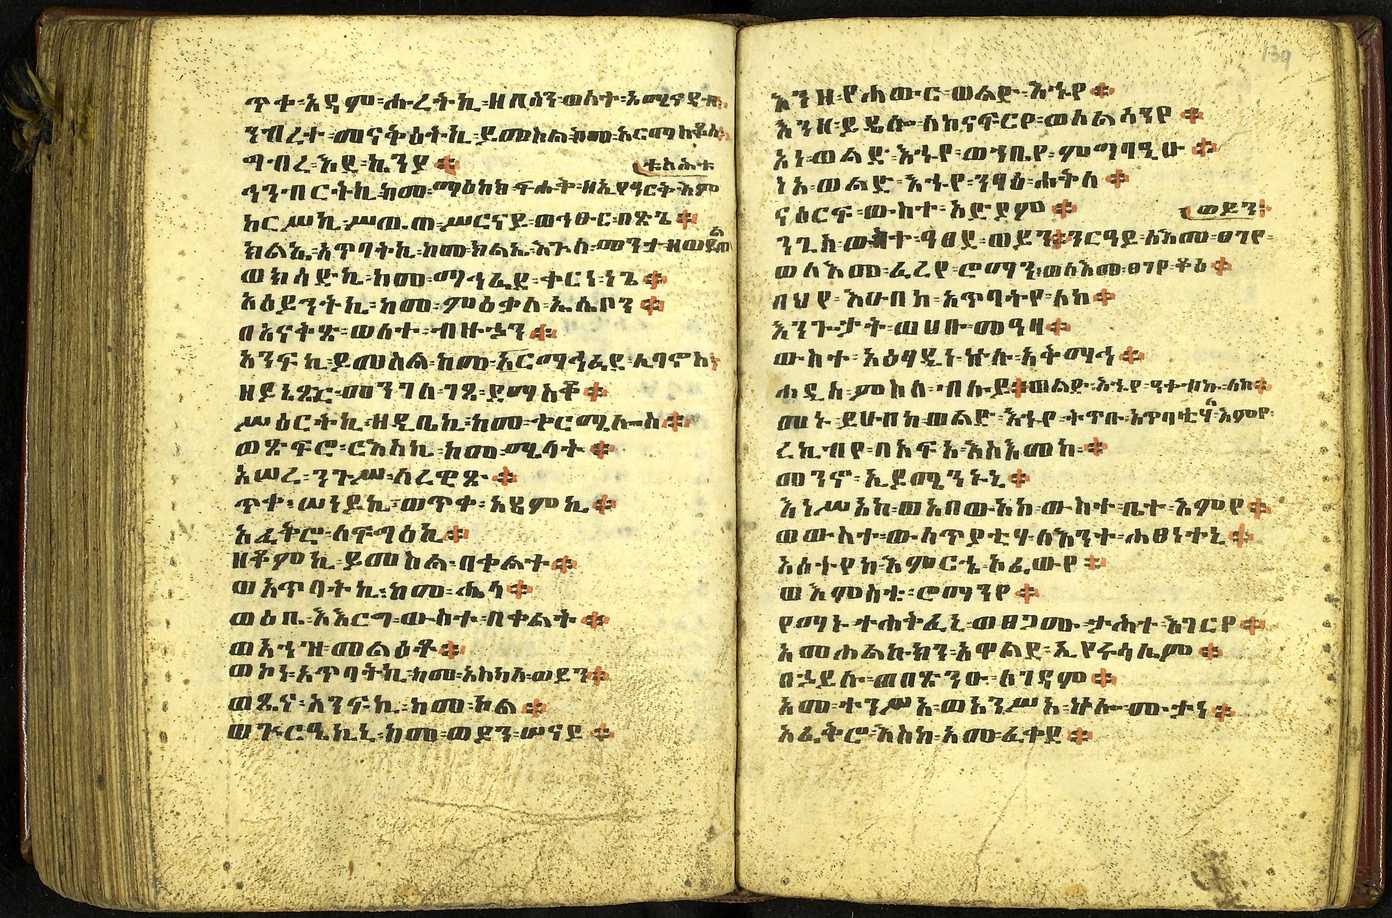 ጥቀ፡አዳም፡ሑረትኪ፡ወለተ፡አሚናዳብ
ንብረተ፡መናትዕትኪ፡ይመስል፡ከመ፡
ግብረ፡እደ፡ኪንያ፨
ኅንብርትኪ፡ከመ፡ማዕከክ፡ፍሑት፡ዘኢየዓርት፡እም
ከርሥኪ፡ሥጢጠ፡ሥርናይ፡ወኅፁር፡በጽጌ፨
ክልኤ፡አጥባትኪ፡ከመ፡ክልኤ፡እጉለ፡መንታ፡ዘወይጠል
ወክሳድኪ፡ከመ፡ማኅፈደ፡ቀርነ፡ነጌ፨
አዕይንትኪ፡ከመ፡ምዕቃለ፡ኤሴቦን፨
በአናቅጽ፡ወለተ፡ብዙኃን፨
አንፍኪ፡ይመስል፡ከመ፡አርማኅፈደ፡ሊባኖስ
ዘይኔጽር፡መንገለ፡ገጸ፡ደማስቆ፨
ሥዕርትኪ፡ዘዲቤኪ፡ከመ፡ቀርሜሎስ፨
ወጽፍሮ፡ርእስኪ፡ከመ፡ሜላት፨
አሠረ፡ንጉሥ፡ሰረዊጽ፨
ጥቀ፡ሠነይኪ፡ወጥቀ፡አደምኪ፨
አፈቅሮ፡ለፍግዕኪ፨
ዘቆምኪ፡ይመስል፡በቀልተ፨
ወአጥባትኪ፡ከመ፡ሔሳ፨
ወዕቤ፡እዕርግ፡ውስተ፡በቀልት፨
ወእኅዝ፡መልዕቆ፨
ወኮነ፡አጥባትኪ፡ከመ፡አስካለ፡ወይን፨
ወጼና፡አንፍኪ፡ከመ፡ኮል፨
ወጉርዔኪኒ፡ከመ፡ወይን፡ሠናይ፨
እንዘ፡የሐውር፡ወልድ፡እኁየ፨
እንዘ፡ይዴሎ፡ለከናፍርየ፡ወለልሳንየ፨
አነ፡ወልድ፡እኁየ፡ወኀቤየ፡ምግባዒሁ፨
ነአ፡ወልድ፡እኁየ፡ንፃዕ፡ሐቅለ፨
ናዕርፍ፡ውስተ፡አድያም፨ ወይን፡
ንጊስ፡ውስተ፡ዓፀደ፡ወይን፨ንርዓይ፡ለእመ፡ፀገየ
ወለእመ፡ፈረየ፡ሮማን፡ወለእመ፡ፀገየ፡ቆዕ፨
በህየ፡እሁበከ፡አጥባትየ፡ለከ፨
እንጉታት፡ወሀቡ፡መዓዛ፨
ውስተ፡አዕፃዲነ፡ኵሉ፡አቅማኅ፨
ሐዲስ፡ምስለ፡ብሉይ፨ወልድ፡እኁየ፡ዓቀብኩ፡ለከ፨
መኑ፡ይሁበከ፡ወልድ፡እኁየ፡ትጥቡ፡አጥባቲሃ፡ለእምየ
ረኪብየ፡በአፍአ፡እስእመከ፨
መንኖ፡ኢይሜንኑኒ፨
እነሥአከ፡ወአበውአከ፡ውስተ፡ቤተ፡እምየ፨
ወውስተ፡ውሳጥያቲሃ፡ለእንተ፡ሐፀነተኒ፨
አሰትየከ፡እምርኄ፡አፈውየ፨
ወእምስቴ፡ሮማንየ፨
የማኑ፡ተሐቅፈኒ፡ወፀጋሙ፡ታሕተ፡እገርየ፨
አመሐልኩክን፡አዋልደ፡ኢየሩሳሌም፨
በኃይሉ፡ወበጽንዑ፡ለገዳም፨
አመ፡ተንሥአ፡ወአንሥአ፡ኵሎ፡ሙታነ፨
አፈቅሮ፡እስከ፡አመ፡ፈቀደ፨